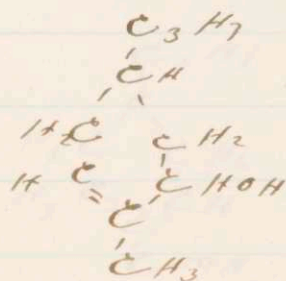 C3H7
CH
H2C CH2
HC CHOH
C
CH3